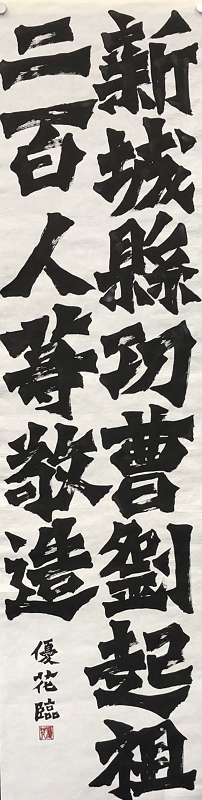 新城縣功曹劉起祖
二百人等敬造
優花臨